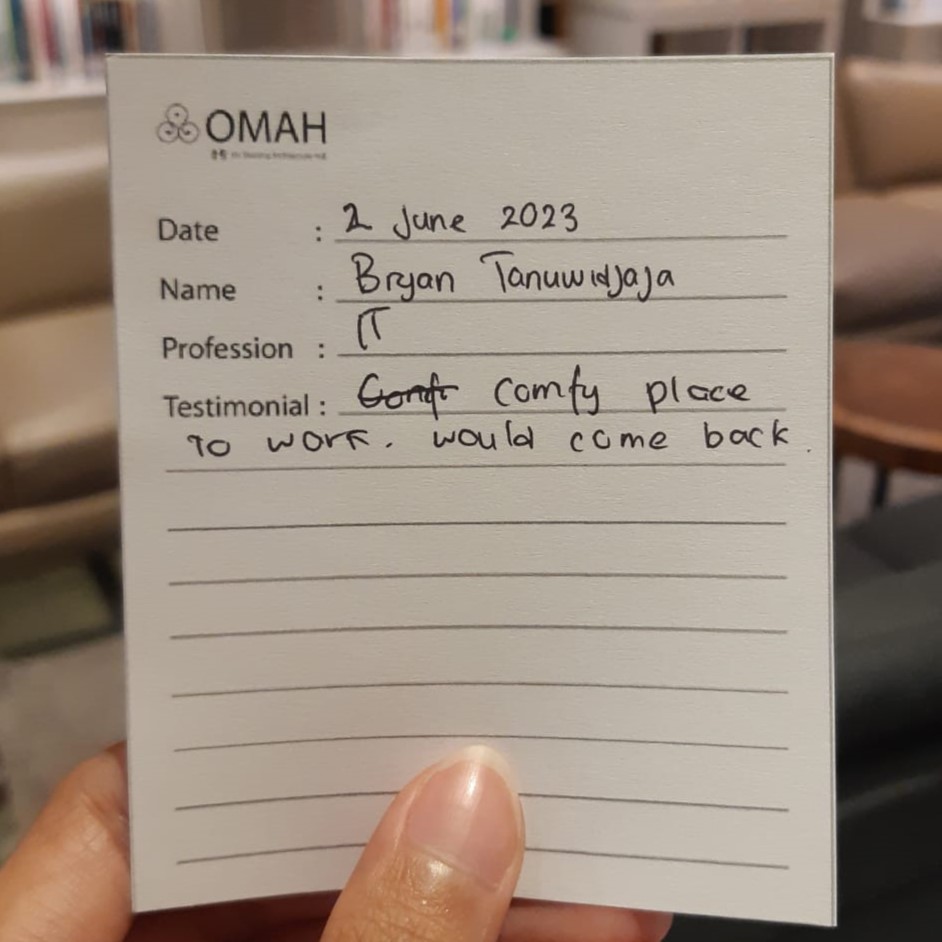 OMAH
Date : 2 June 2023
Name : Bryan Tanuwidjaja
Profession : IT
Testimonial : comfy place
to work. would come back.